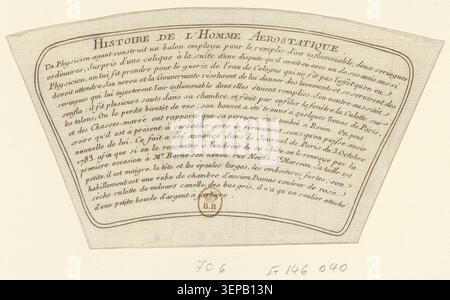 HISTOIRE DE L'HOMME AEROSTATIQUE
Un Physicien ayant construit un balon employa pour le remplir d'air inflammable, deux seringues
ordinaires, Surpris d'une colique à la suite d'une dispute qu'il avoit eu avec un de ses amis aussi
Physicien, on lui fit prendre pour le guerir, de l'eau de Cologne qui ne fit pas l'effet qu'on en
devoit attendre. Son neveu et la Gouvernante résolurent de lui donner des lavements et se servirent des
seringues qui lui injecterent l'air inflammable dont elles étoient remplies. Son ventre aussitôt
s'enfla; il fit plusieurs sauts dans sa chambre, et finit par enfiler la fenêtre la Culotte sur
les talons. On le perdit bientôt de vue; son bonnet a été trouvé à quelques lieues de Paris,
et des Chasse-marée ont rapporté que sa perruque étoit tombée à Rouen. On peut
voir qu'il est à présent à sans qu'on puisse avoir
nouvelle de lui. Ce fait a été annoncé dans le Journal de Paris du 3. Octobre
1783 afin que si on le rencontre à l'endroit de sa chute on le renvoye par la
première occasion à Mr. Borne son neveu rue Neuve St. Martin. Sa taille est
petite, il est maigre, la tête et les épaules larges, les emboitures fortes, son
habillement est une robe de chambre d'ancien Damas couleur de rose
seche culotte de velours canelle, des bas gris, il n'a qu'un soulier attaché
d'une petite boucle d'argent à
B.R
706 G 146 040
alamy
Image ID: 3EPB13N
www.alamy.com